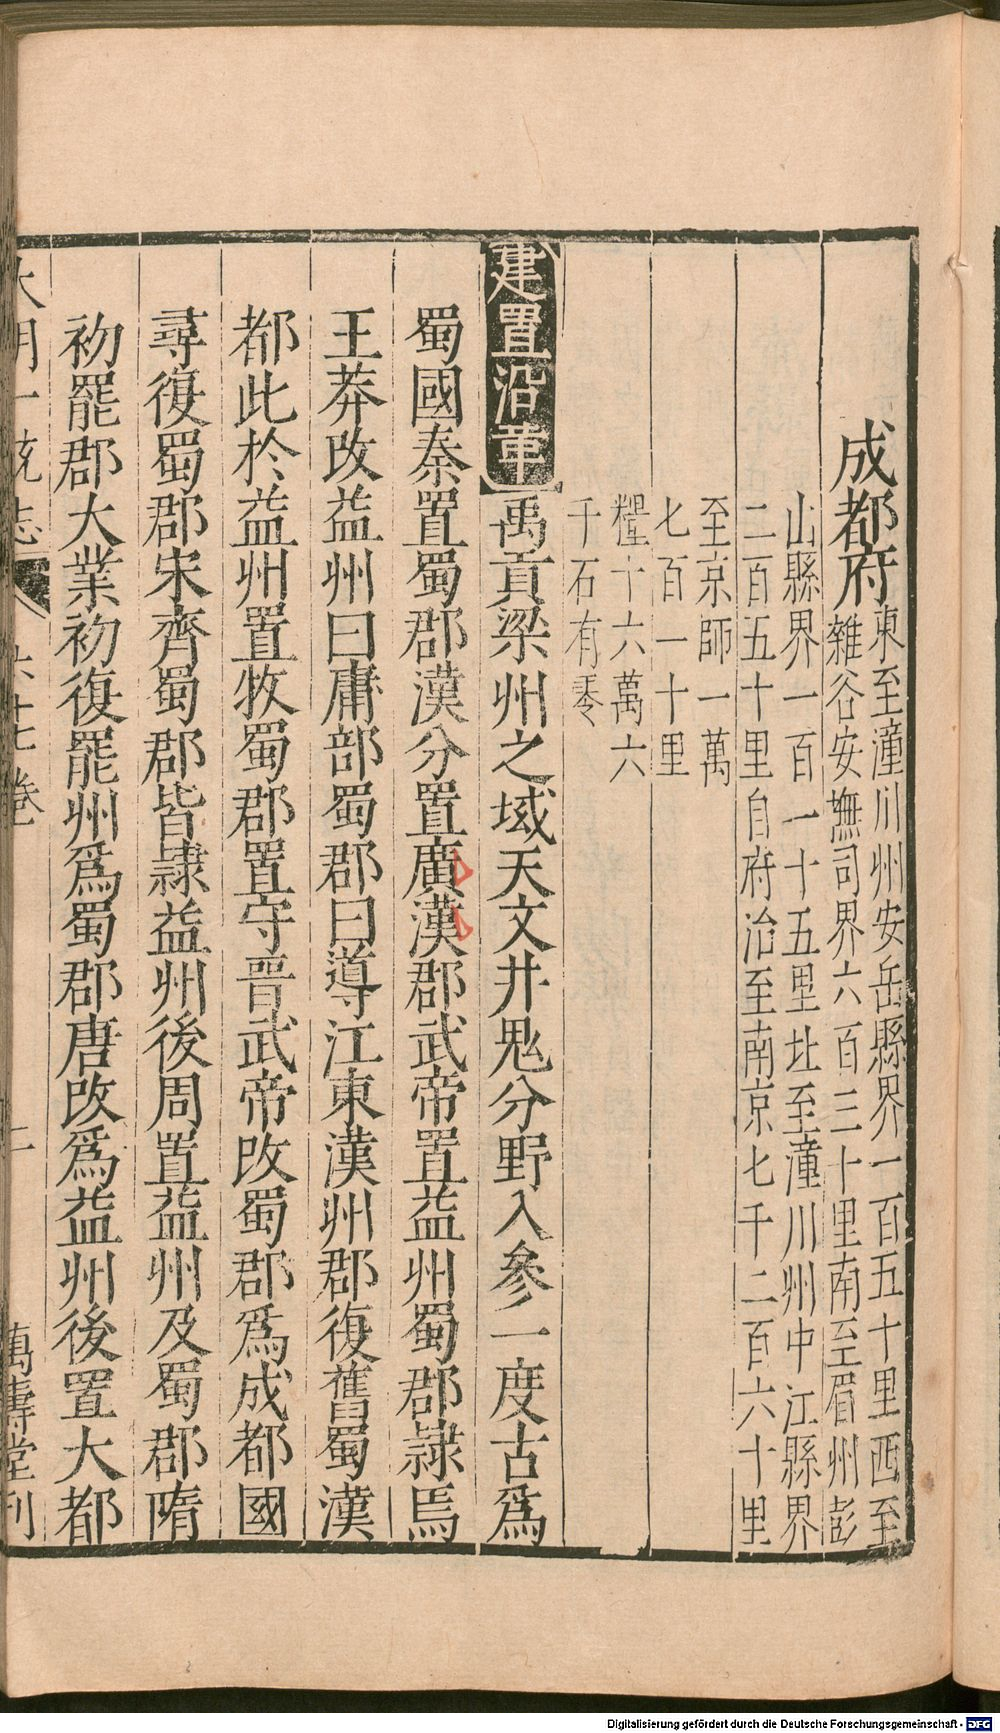 成都府東至潼川州安岳縣界一百五十里西至
雜谷安撫司界六百三十里南至眉州彭
山縣界一百一十五里北至潼川州中江縣界
二百五十里自府治至南京七千二百六十里
至京師一萬
七百一十里
糧十六萬六
千石有零
建置沿革禹貢梁州之域天文井鬼分野入參一度古為
蜀國秦置蜀郡漢分置廣漢郡武帝置益州蜀郡隷焉
王莽改益州曰庸部蜀郡曰導江東漢州郡復舊蜀漢
都此於益州置牧蜀郡置守晉武帝改蜀郡為成都國
尋復蜀郡宋齊蜀郡皆隷益州後周置益州及蜀郡隋
初罷郡大業初復罷州為蜀郡唐改為益州後置大都
大明一統志 六十七卷 二 萬壽堂刋
Digitalisierung gefördert durch die Deutsche Forschungsgemeinschaft - DFG